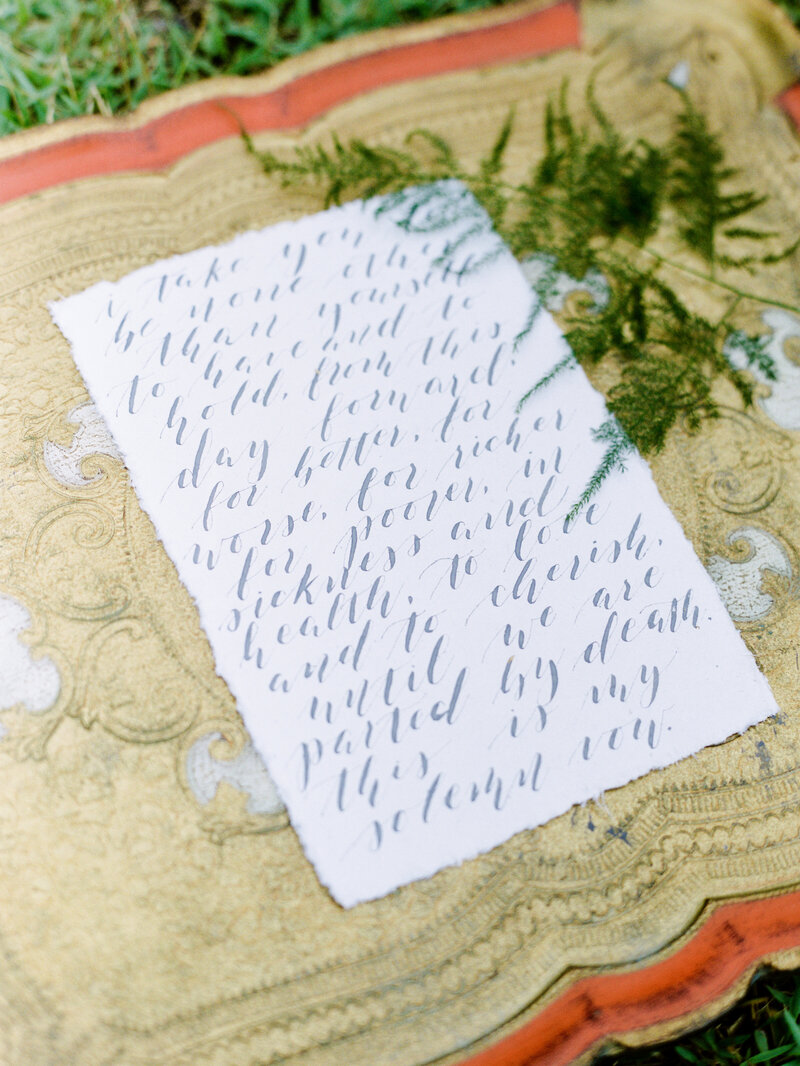 i take you
be none other
than yourself
to have and to
hold, from this
day forward.
for better, for
worse, for richer
for poorer, in
sickness and
health, to love
and to cherish,
until we are
parted by death.
this is my
solemn vow.